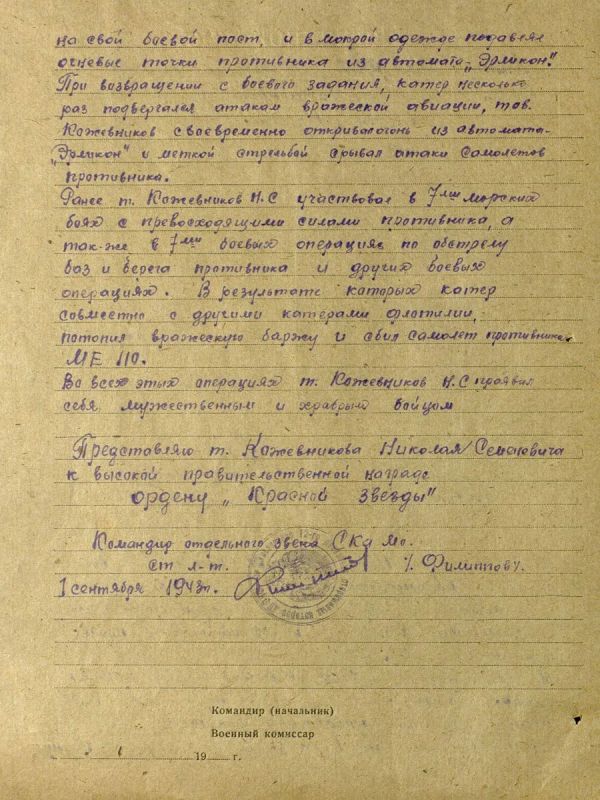 на свой боевой пост, и в мокрой одежде подавлял
огневые точки противника из автомата „Эрликон".
При возвращении с боевого задания, катер несколько
раз подвергался атакам вражеской авиации, тов.
Кожевников своевременно открывал огонь из автомата-
„Эрликон" и меткой стрельбой срывал атаки самолетов
противника.
Ранее т. Кожевников Н.С участвовал в 7ми морских
боях с превосходящими силами противника, а
так-же в 7ми боевых операциях по обстрелу
баз и берега противника и других боевых
операциях. В результате которых катер
совместно с другими катерами флотилии,
потопил вражескую баржу и сбил самолет противника
МЕ 110.
Во всех этих операциях т. Кожевников Н.С проявил
себя мужественным и храбрым бойцом
Представляю т. Кожевникова Николая Семеновича
к высокой правительственной награде
ордену „Красной Звезды"
Командир отдельного звена СКА МО.
ст л-т. /Филиппов/.
1 сентября 1943г.
Командир (начальник)
Военный комиссар
19 г.